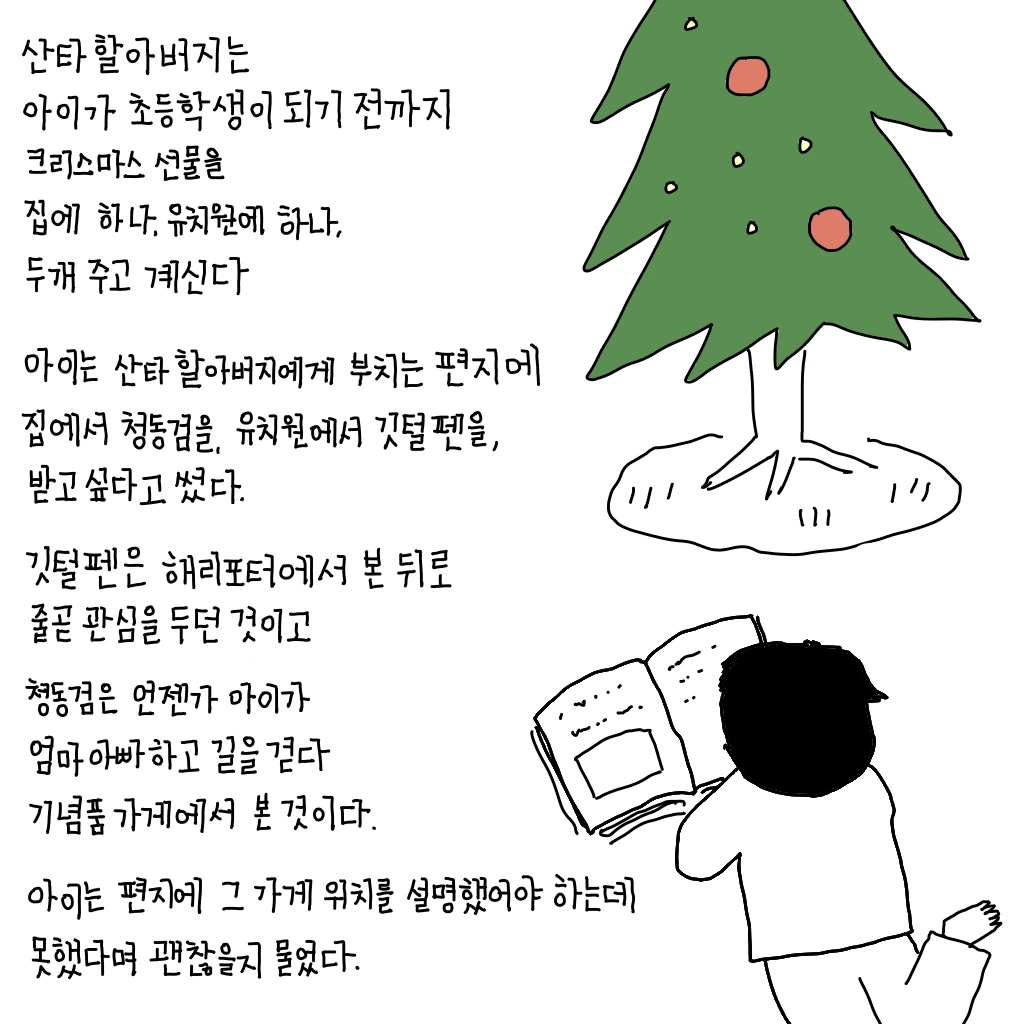 산타 할아버지는
아이가 초등학생이 되기 전까지
크리스마스 선물을
집에 하나, 유치원에 하나,
두개 주고 계신다
아이는 산타 할아버지에게 부치는 편지에
집에서 청동검을, 유치원에서 깃털펜을,
받고 싶다고 썼다.
깃털펜은 해리포터에서 본 뒤로
줄곧 관심을 두던 것이고
청동검은 언젠가 아이가
엄마 아빠하고 길을 걷다
기념품 가게에서 본 것이다.
아이는 편지에 그 가게 위치를 설명했어야 하는데
못했다며 괜찮을지 물었다.